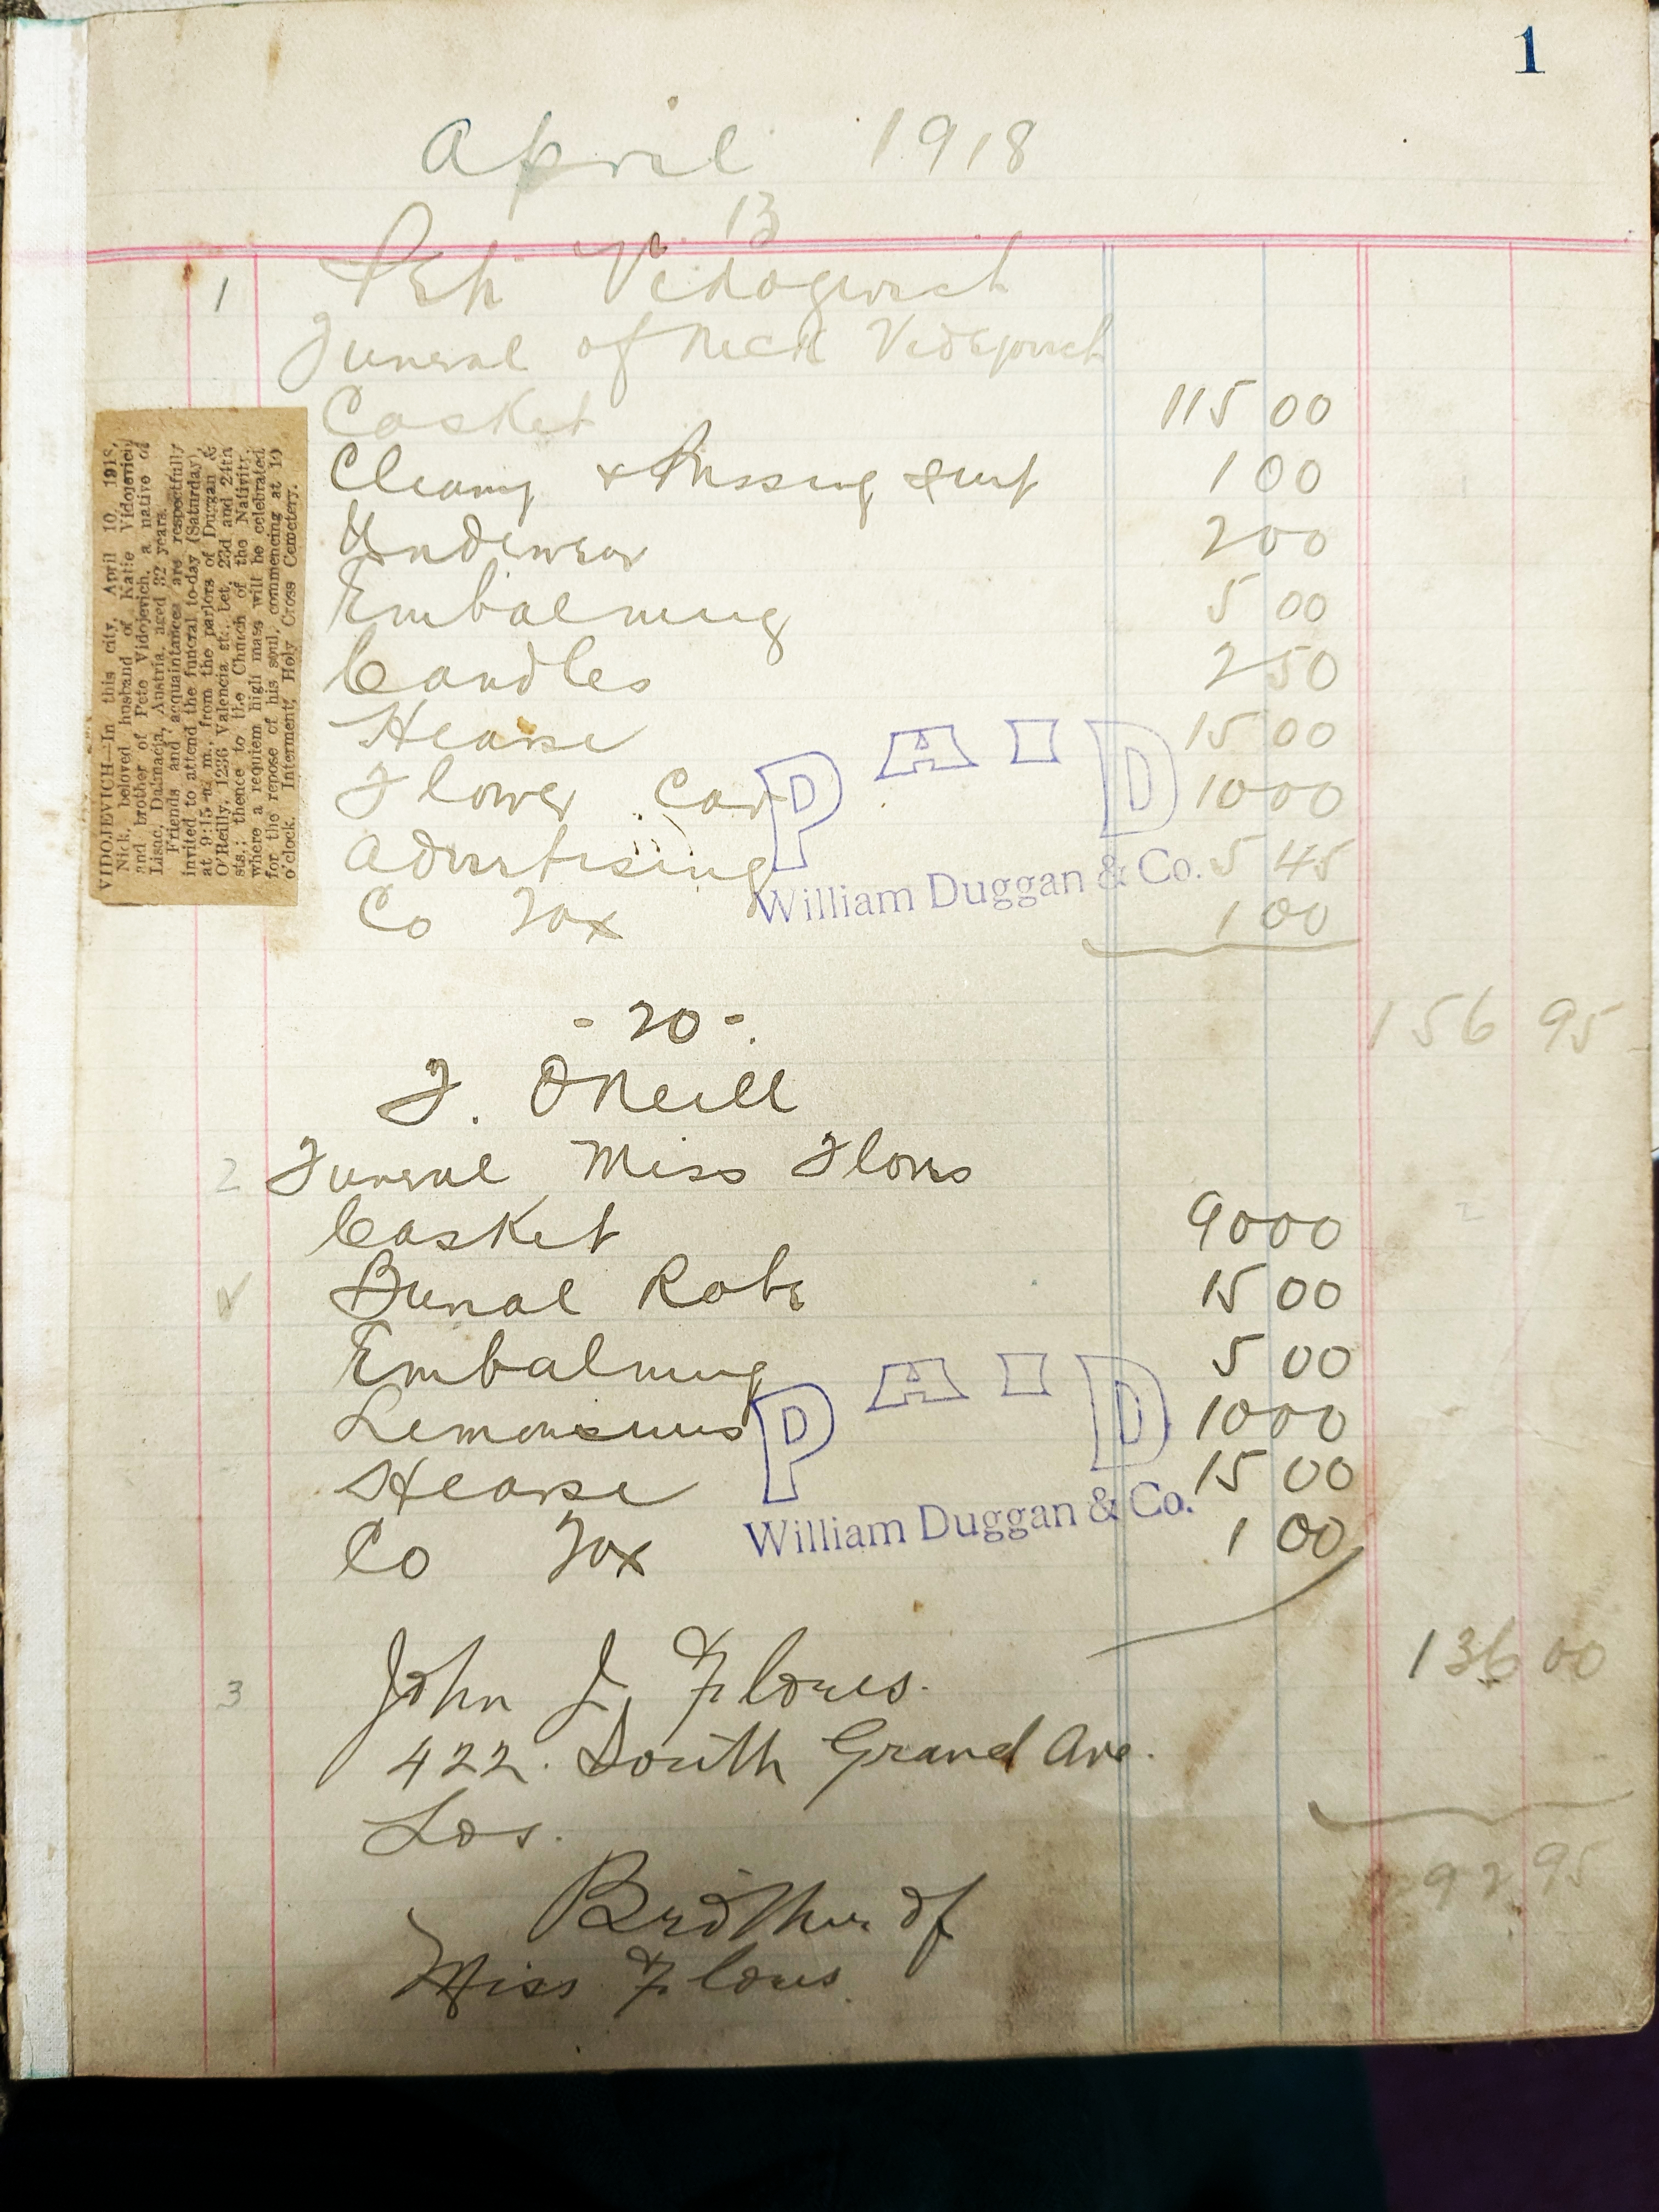 1
April 1918
13
1 Pete Vidogovich
Funeral of Nick Vidojovich
Casket 115 00
Cleany & Pressing suit 1 00
Underwear 2 00
Embalming 5 00
Candles 2 50
Hearse 15 00
Flower Car 10 00
Advertising 5 45
Co Tax 1 00
156 95
PAID
William Duggan & Co.
VIDOJEVICH—In this city, April 10, 1918,
Nick, beloved husband of Katie Vidojevich,
and brother of Pete Vidojevich, a native of
Lisac, Dalmacia, Austria, aged 32 years.
Friends and acquaintances are respectfully
invited to attend the funeral to-day (Saturday),
at 9:15 a. m., from the parlors of Duggan &
O'Reilly, 1236 Valencia st., bet. 23d and 24th
sts.; thence to the Church of the Nativity,
where a requiem high mass will be celebrated
for the repose of his soul, commencing at 10
o'clock. Interment, Holy Cross Cemetery.
- 20 -
J. O'Neill
2 Funeral Miss Flores
Casket 90 00
Burial Robe 15 00
Embalming 5 00
Lemonsines 10 00
Hearse 15 00
Co Tax 1 00
136 00
PAID
William Duggan & Co.
3 John J. Flores.
422. South Grand Ave.
Los.
292 95
Brother of
Miss Flores.